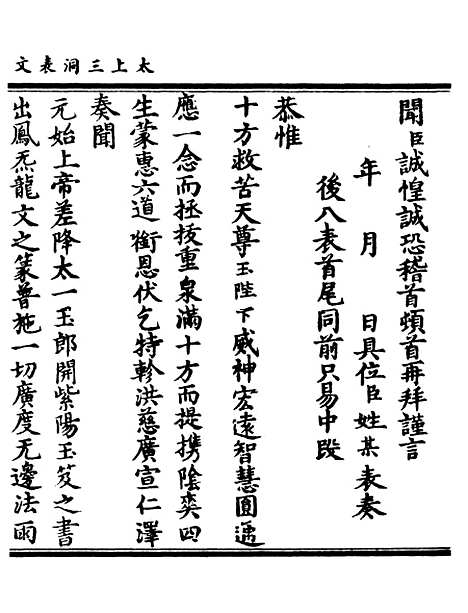 太上三洞表文
聞臣誠惶誠恐稽首頓首再拜謹言
年　月　日具位臣姓某表奏
後八表首尾同前只易中段
恭惟
十方救苦天尊玉陛下威神宏遠智慧圓通
應一念而拯拔重泉滿十方而提攜陰爽四
生蒙惠六道銜恩伏乞特軫洪慈廣宣仁澤
奏聞
元始上帝差降太一玉郎開紫陽玉笈之書
出鳳炁龍文之篆普施一切廣度无邊法雨